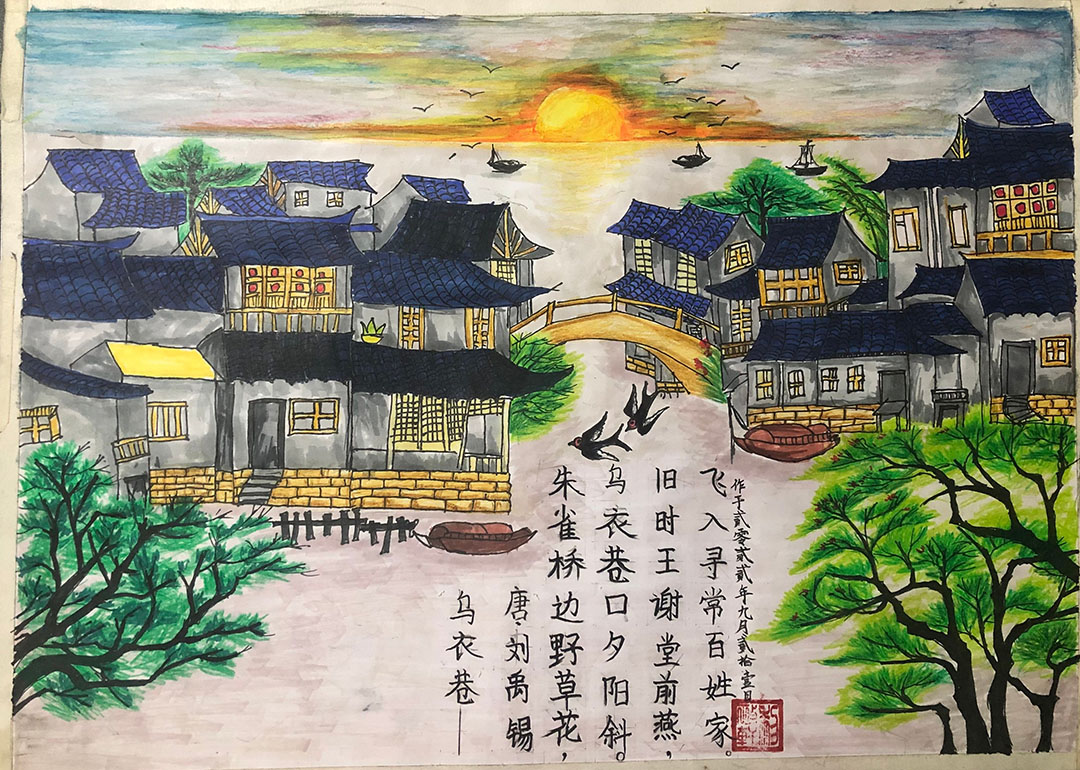 乌衣巷——
唐·刘禹锡
朱雀桥边野草花，
乌衣巷口夕阳斜。
旧时王谢堂前燕，
飞入寻常百姓家。
作于贰零贰贰年九月贰拾壹日